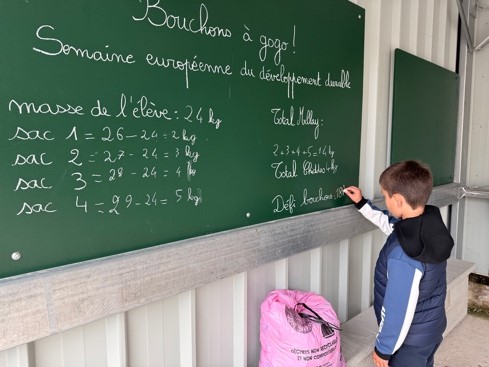 Bouchons à gogo!
Semaine européenne du développement durable
masse de l'élève : 24 kg
sac 1 = 26 - 24 = 2 kg
sac 2 = 27 - 24 = 3 kg
sac 3 = 28 - 24 = 4 kg
sac 4 = 29 - 24 = 5 kg
Total
2+3+4+5=14 kg
Total
Défi bouchons :
DÉCHETS NON RECYCLABLES
ET NON COMPOSTABLES